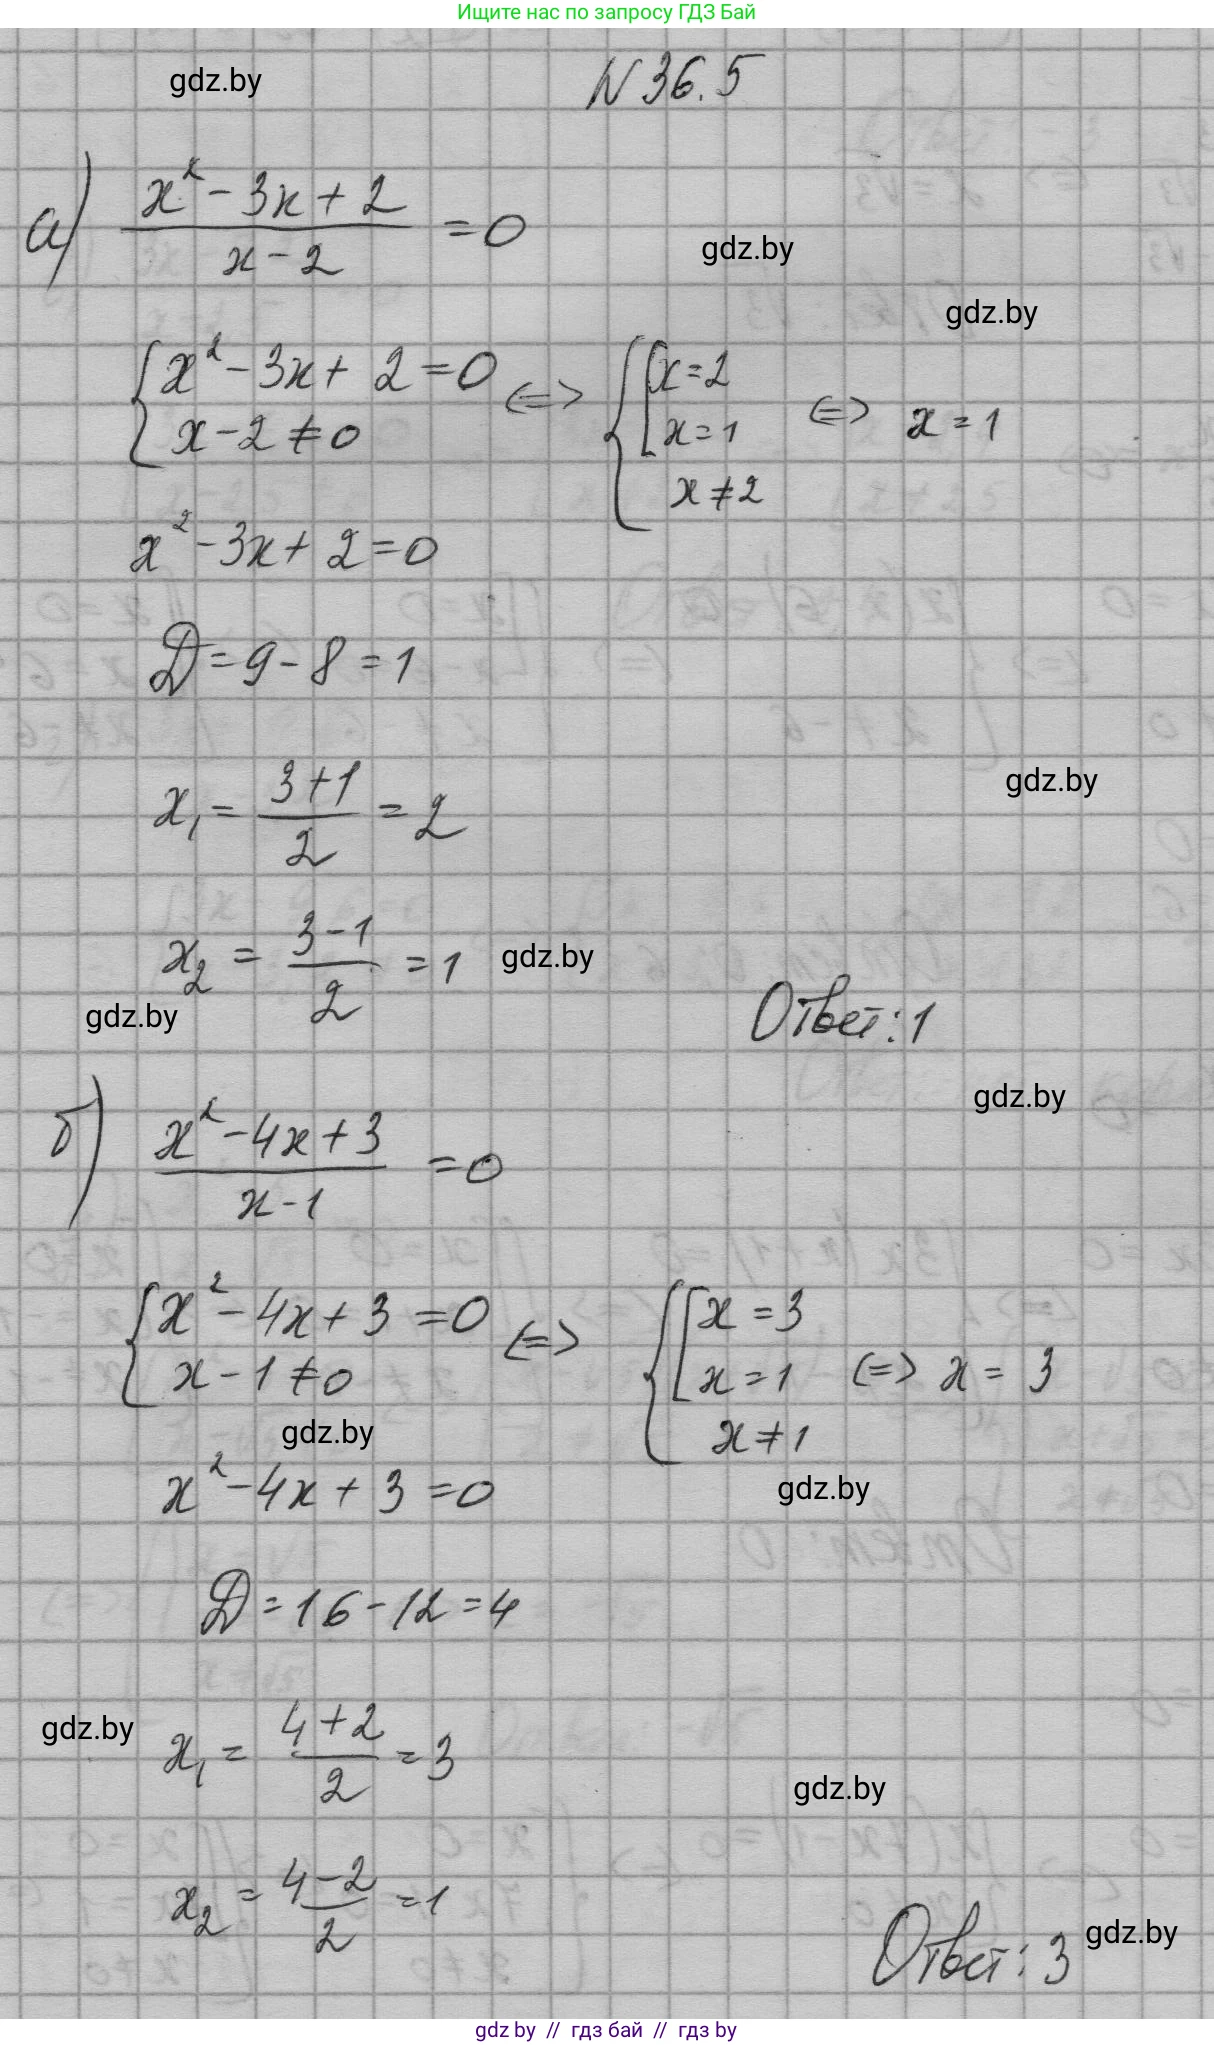 Ищите нас по запросу ГДЗ Бай
gdz.by
N 36.5
а) (x² - 3x + 2)/(x - 2) = 0
gdz.by
gdz.by
{ x² - 3x + 2 = 0 <=> { [ x = 2
x - 2 ≠ 0 x = 1 <=> x = 1
x ≠ 2
x² - 3x + 2 = 0
D = 9 - 8 = 1
gdz.by
x₁ = (3 + 1)/2 = 2
x₂ = (3 - 1)/2 = 1 gdz.by
gdz.by
Ответ: 1
gdz.by
б) (x² - 4x + 3)/(x - 1) = 0
{ x² - 4x + 3 = 0 <=> { [ x = 3
x - 1 ≠ 0 x = 1 <=> x = 3
gdz.by x ≠ 1
x² - 4x + 3 = 0 gdz.by
D = 16 - 12 = 4
gdz.by
x₁ = (4 + 2)/2 = 3
gdz.by
x₂ = (4 - 2)/2 = 1
Ответ: 3 gdz.by
gdz by // гдз бай // гдз by